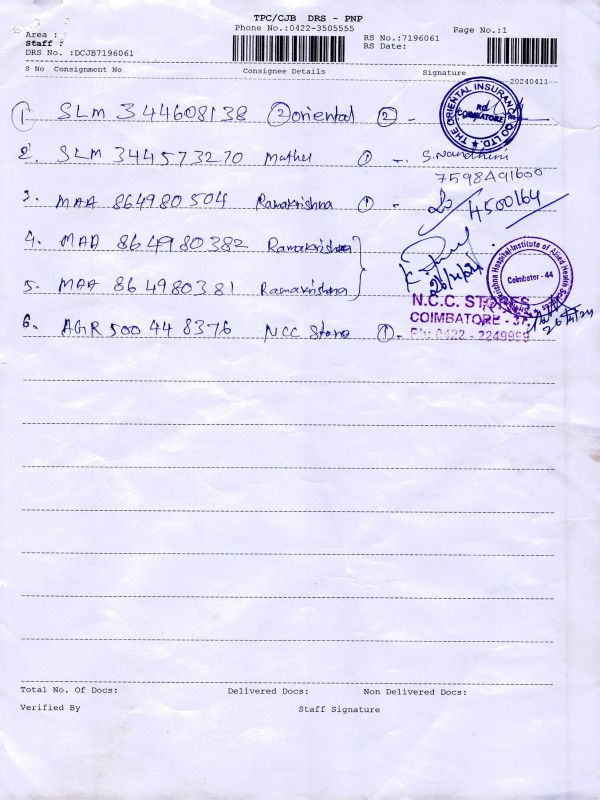 TPC/CJB DRS - PNP
Area :
Phone No.:0422-3505555
Page No.:1
Staff :
RS No.:7196061
RS Date:
DRS No. :DCJB7196061
S No Consignment No Consignee Details Signature
20240411
1 SLM 344608138 2 oriental 2 -
THE ORIENTAL INSURANCE CO LTD.
COIMBATORE
2. SLM 344573270 Muthu 1 - S. Nandhini
7598491600
3. MAA 864980504 Ramakrishna 1 - 4500164
4. MAA 864980382 Ramakrishna
5. MAA 864980381 Ramakrishna
Coimbator - 44
N.C.C. STORES
COIMBATORE - 37.
Ph: 0422 - 2249999
6. AGR 500448376 NCC Store 1 -
Total No. Of Docs: Delivered Docs: Non Delivered Docs:
Verified By Staff Signature